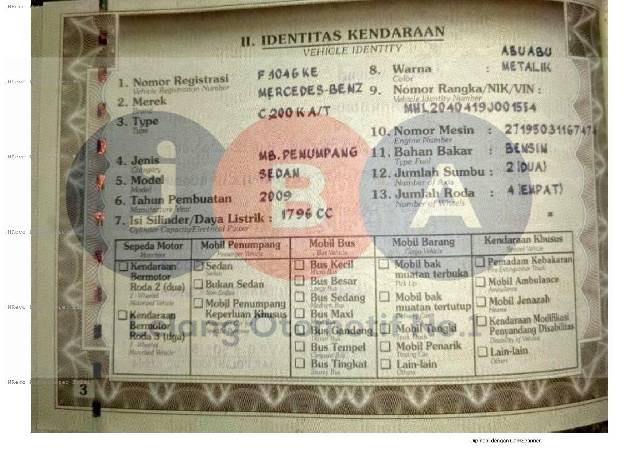 II. IDENTITAS KENDARAAN
VEHICLE IDENTITY
1. Nomor Registrasi F 1046 KE
Vehicle Registration Number
2. Merek MERCEDES-BENZ
Brand
3. Type C 200 K A/T
Type
4. Jenis MB. PENUMPANG
Category
5. Model SEDAN
Model
6. Tahun Pembuatan 2009
Manufacture Year
7. Isi Silinder/Daya Listrik : 1796 CC
Cylinder Capacity/Electrical Power
8. Warna : ABUABU METALIK
Color
9. Nomor Rangka/NIK/VIN :
Vehicle Identity Number
MHL2040419J001554
10. Nomor Mesin :
Engine Number
11. Bahan Bakar : BENSIN
Type Fuel
12. Jumlah Sumbu : 2 (DUA)
Number of Axles
13. Jumlah Roda : 4 (EMPAT)
Number of Wheels
Sepeda Motor
Mobil Penumpang
Passenger Vehicle
Mobil Bus
Bus Vehicle
Mobil Barang
Cargo Vehicle
Kendaraan Khusus
Special Vehicle
Kendaraan
Bermotor
Roda 2 (dua)
2 - Wheeled
Motorized Vehicle
Kendaraan
Bermotor
Roda 3 (tiga)
3 - Wheeled
Motorized Vehicle
Sedan
Sedan
Bukan Sedan
Non Sedan
Mobil Penumpang
Keperluan Khusus
Bus Kecil
Bus Besar
Bus Sedang
Bus Maxi
Bus Gandeng
Bus Tempel
Bus Tingkat
Mobil bak
muatan terbuka
Pick Up
Mobil bak
muatan tertutup
Mobil Tangki
Mobil Penarik
Lain-lain
Others
Pemadam Kebakaran
Mobil Ambulance
Ambulance
Mobil Jenazah
Kendaraan Modifikasi
Penyandang Disabilitas
Lain-lain
Others
3
iBA
Lelang Otomotif No.1